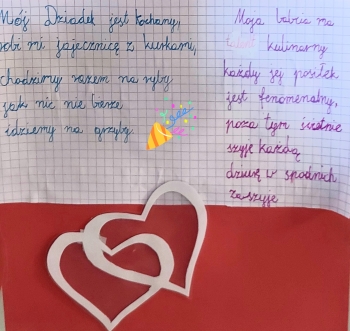 Mój Dziadek jest kochany,
robi mi jajecznicę z kurkami,
chodzimy razem na ryby
jak nic nie bierze
idziemy na grzyby.
Moja babcia ma
kulinarny
każdy jej posiłek
jest fenomenalny,
poza tym świetnie
szyje każdą
dziurę w spodniach
zaszyje